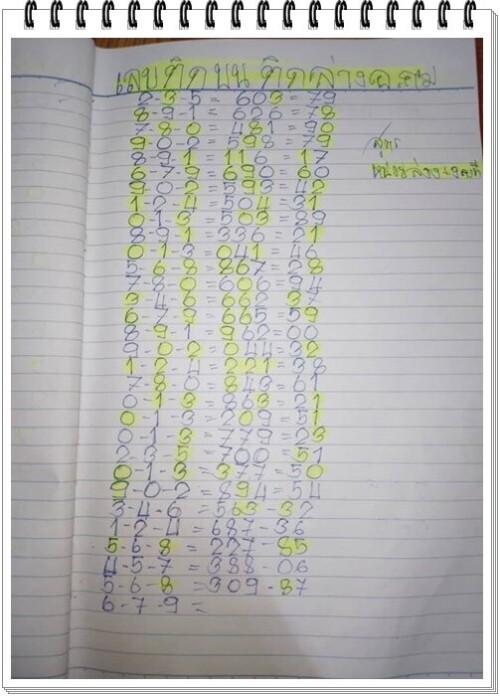 เลขติดบน ติดล่างงวดถาม
2-3-5 = 603 = 79
8-9-1 = 626 = 78
7-8-0 = 481 = 90
9-0-2 = 598 = 79
สูตร
8-9-1 = 116 = 17
6-7-9 = 690 = 60
9-0-2 = 593 = 42
1-2-4 = 504 = 31
0-1-3 = 503 = 89
8-9-1 = 336 = 21
0-1-3 = 041 = 46
5-6-8 = 867 = 28
7-8-0 = 606 = 94
3-4-6 = 662 = 37
6-7-9 = 665 = 59
8-9-1 = 962 = 00
9-0-2 = 044 = 32
1-2-4 = 221 = 38
7-8-0 = 843 = 61
0-1-3 = 863 = 21
0-1-3 = 209 = 51
0-1-3 = 779 = 23
2-3-5 = 700 = 51
0-1-3 = 377 = 50
9-0-2 = 894 = 54
3-4-6 = 563 - 32
1-2-4 = 687 - 36
5-6-8 = 227 - 85
4-5-7 = 388 - 06
5-6-8 = 309 - 87
6-7-9 =